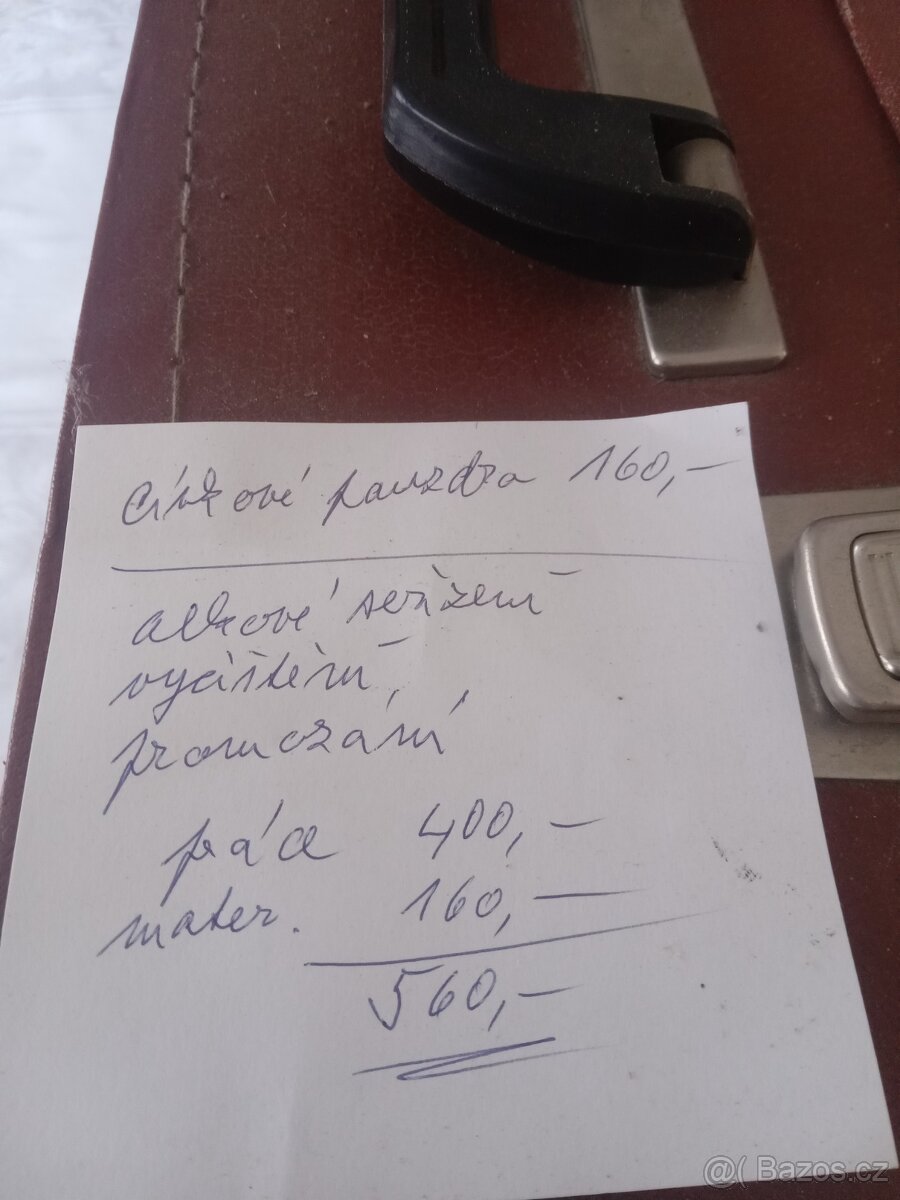 cívkové pouzdro 160,-
celkové seřízení
vyčištění,
promazání
práce 400,-
mater. 160,-
560,-
@( Bazos.cz